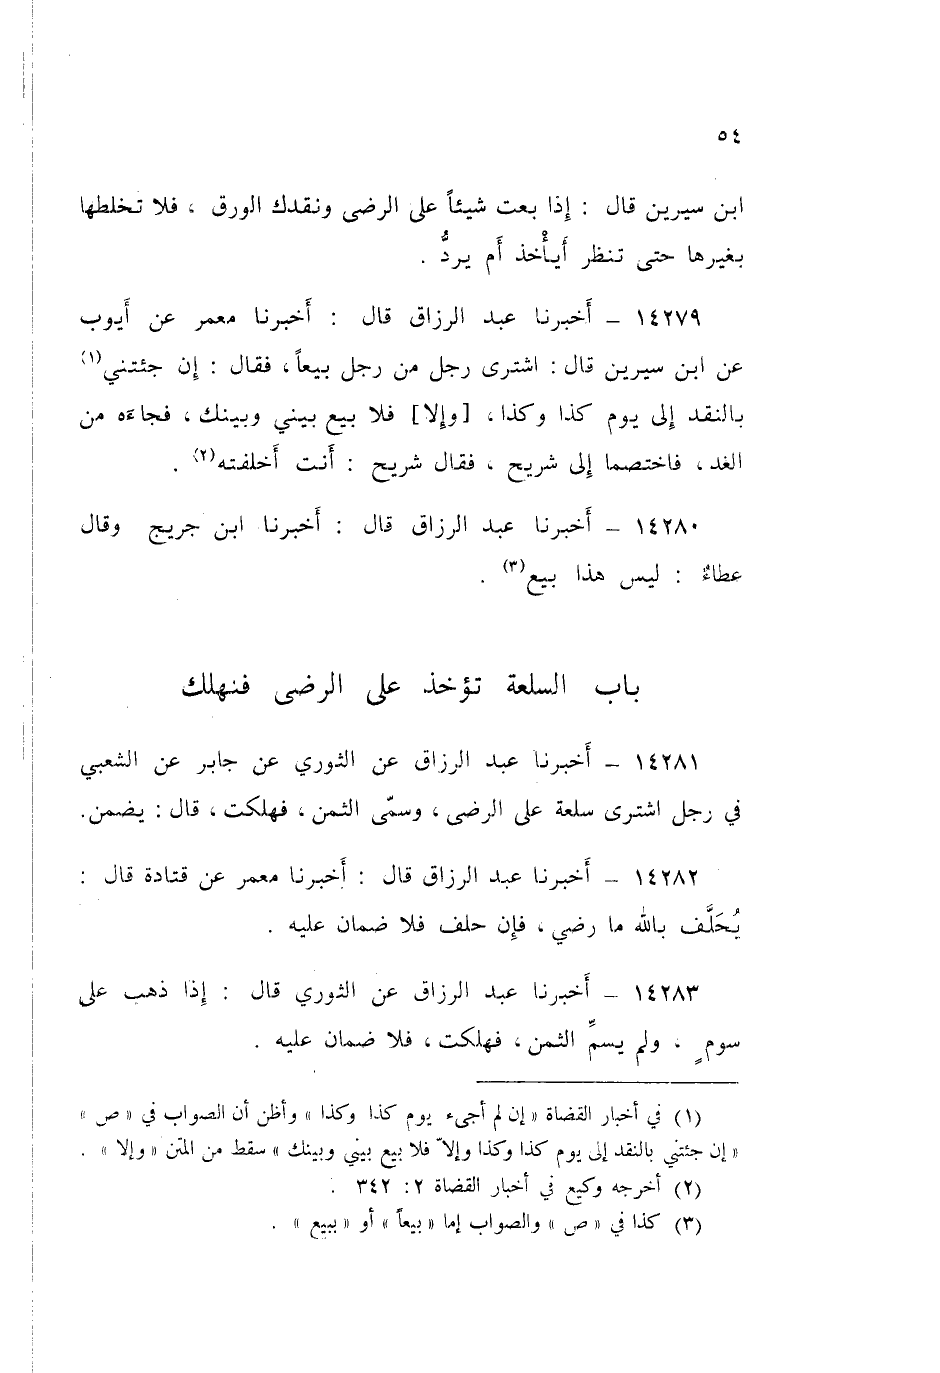 ٥٤
ابن سيرين قال : إِذا بعت شيئاً على الرضى ونقدك الورق ، فلا تخلطها
بغيرها حتى تنظر أَيأْخذ أَم يردُّ .
١٤٢٧٩ – أَخبرنا عبد الرزاق قال : أَخبرنا معمر عن أَيوب
عن ابن سيرين قال : اشترى رجل من رجل بيعاً ، فقال : إِن جئتني(١)
بالنقد إِلى يوم كذا وكذا ، [وإِلا] فلا بيع بيني وبينك ، فجاءَه من
الغد ، فاختصما إِلى شريح ، فقال شريح : أَنت أَخلفته(٢) .
١٤٢٨٠ – أَخبرنا عبد الرزاق قال : أَخبرنا ابن جريج وقال
عطاءٌ : ليس هذا بيع(٣) .
باب السلعة تؤخذ على الرضى فنهلك
١٤٢٨١ – أَخبرنا عبد الرزاق عن الثوري عن جابر عن الشعبي
في رجل اشترى سلعة على الرضى ، وسمّى الثمن ، فهلكت ، قال : يضمن.
١٤٢٨٢ – أَخبرنا عبد الرزاق قال : أَخبرنا معمر عن قتادة قال :
يُحَلَّف بالله ما رضي ، فإِن حلف فلا ضمان عليه .
١٤٢٨٣ – أَخبرنا عبد الرزاق عن الثوري قال : إِذا ذهب على
سومٍ ، ولم يسمِّ الثمن ، فهلكت ، فلا ضمان عليه .
(١) في أخبار القضاة « إن لم أجىء يوم كذا وكذا » وأظن أن الصواب في « ص »
« إن جئتني بالنقد إلى يوم كذا وكذا وإلاّ فلا بيع بيني وبينك » سقط من المتن « وإلا » .
(٢) أخرجه وكيع في أخبار القضاة ٢: ٣٤٢ .
(٣) كذا في « ص » والصواب إما « بيعاً » أو « ببيع » .